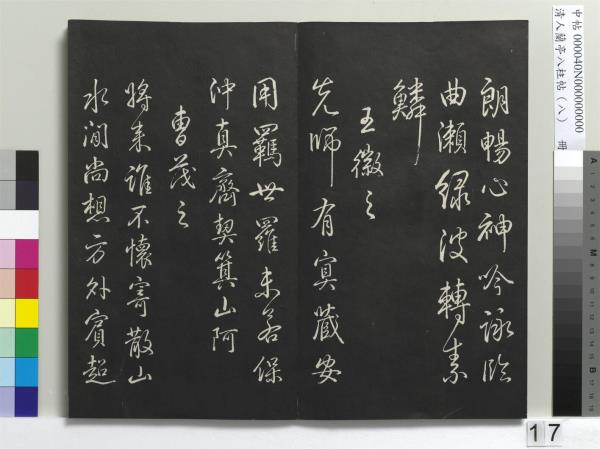 中帖 000040N000000000 冊
清人蘭亭八柱帖（八）
朗暢心神吟詠臨
曲瀨綠波轉素
鱗
王徽之
先師有冥藏安
用羈世羅未若保
沖真齊契箕山阿
曹茂之
時来誰不懷寄散山
水間尚想方外賓超
17